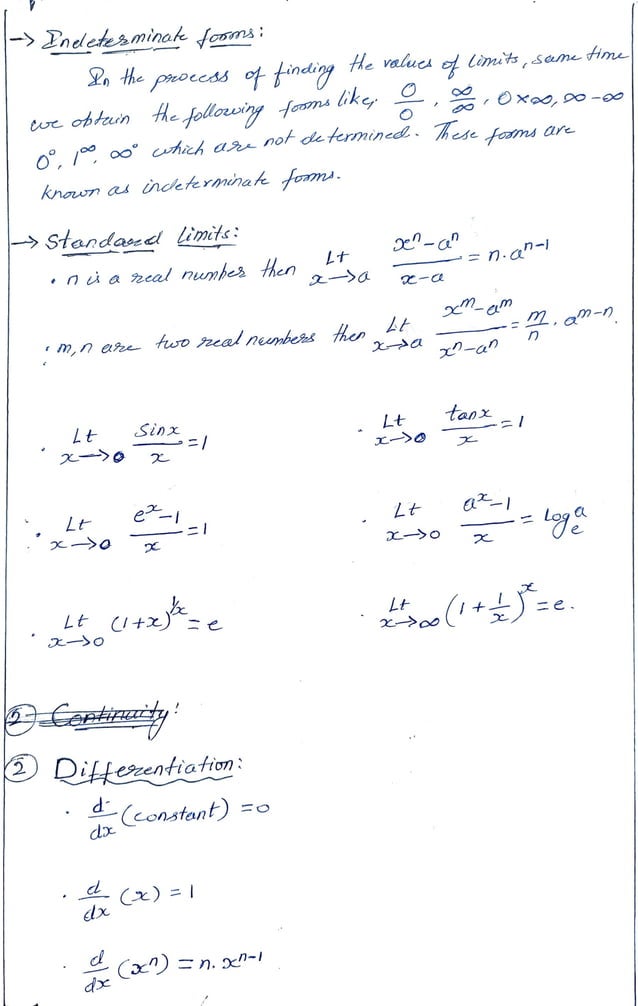 → Indeterminate forms:
In the process of finding the values of limits, same time
we obtain the following forms like, 0/0, ∞/∞, 0×∞, ∞-∞
0⁰, 1^∞, ∞⁰ which are not determined. These forms are
known as indeterminate forms.
→ Standard limits:
· n is a real number then Lt x→a (xⁿ-aⁿ)/(x-a) = n.aⁿ⁻¹
· m,n are two real numbers then Lt x→a (x^m-a^m)/(xⁿ-aⁿ) = m/n . a^(m-n)
· Lt x→0 Sinx/x = 1 · Lt x→0 tanx/x = 1
· Lt x→0 (e^x-1)/x = 1 · Lt x→0 (a^x-1)/x = log_e^a
· Lt x→0 (1+x)^(1/x) = e · Lt x→∞ (1+1/x)^x = e.
② Continuity:
② Differentiation:
· d/dx (constant) = 0
· d/dx (x) = 1
· d/dx (xⁿ) = n. xⁿ⁻¹